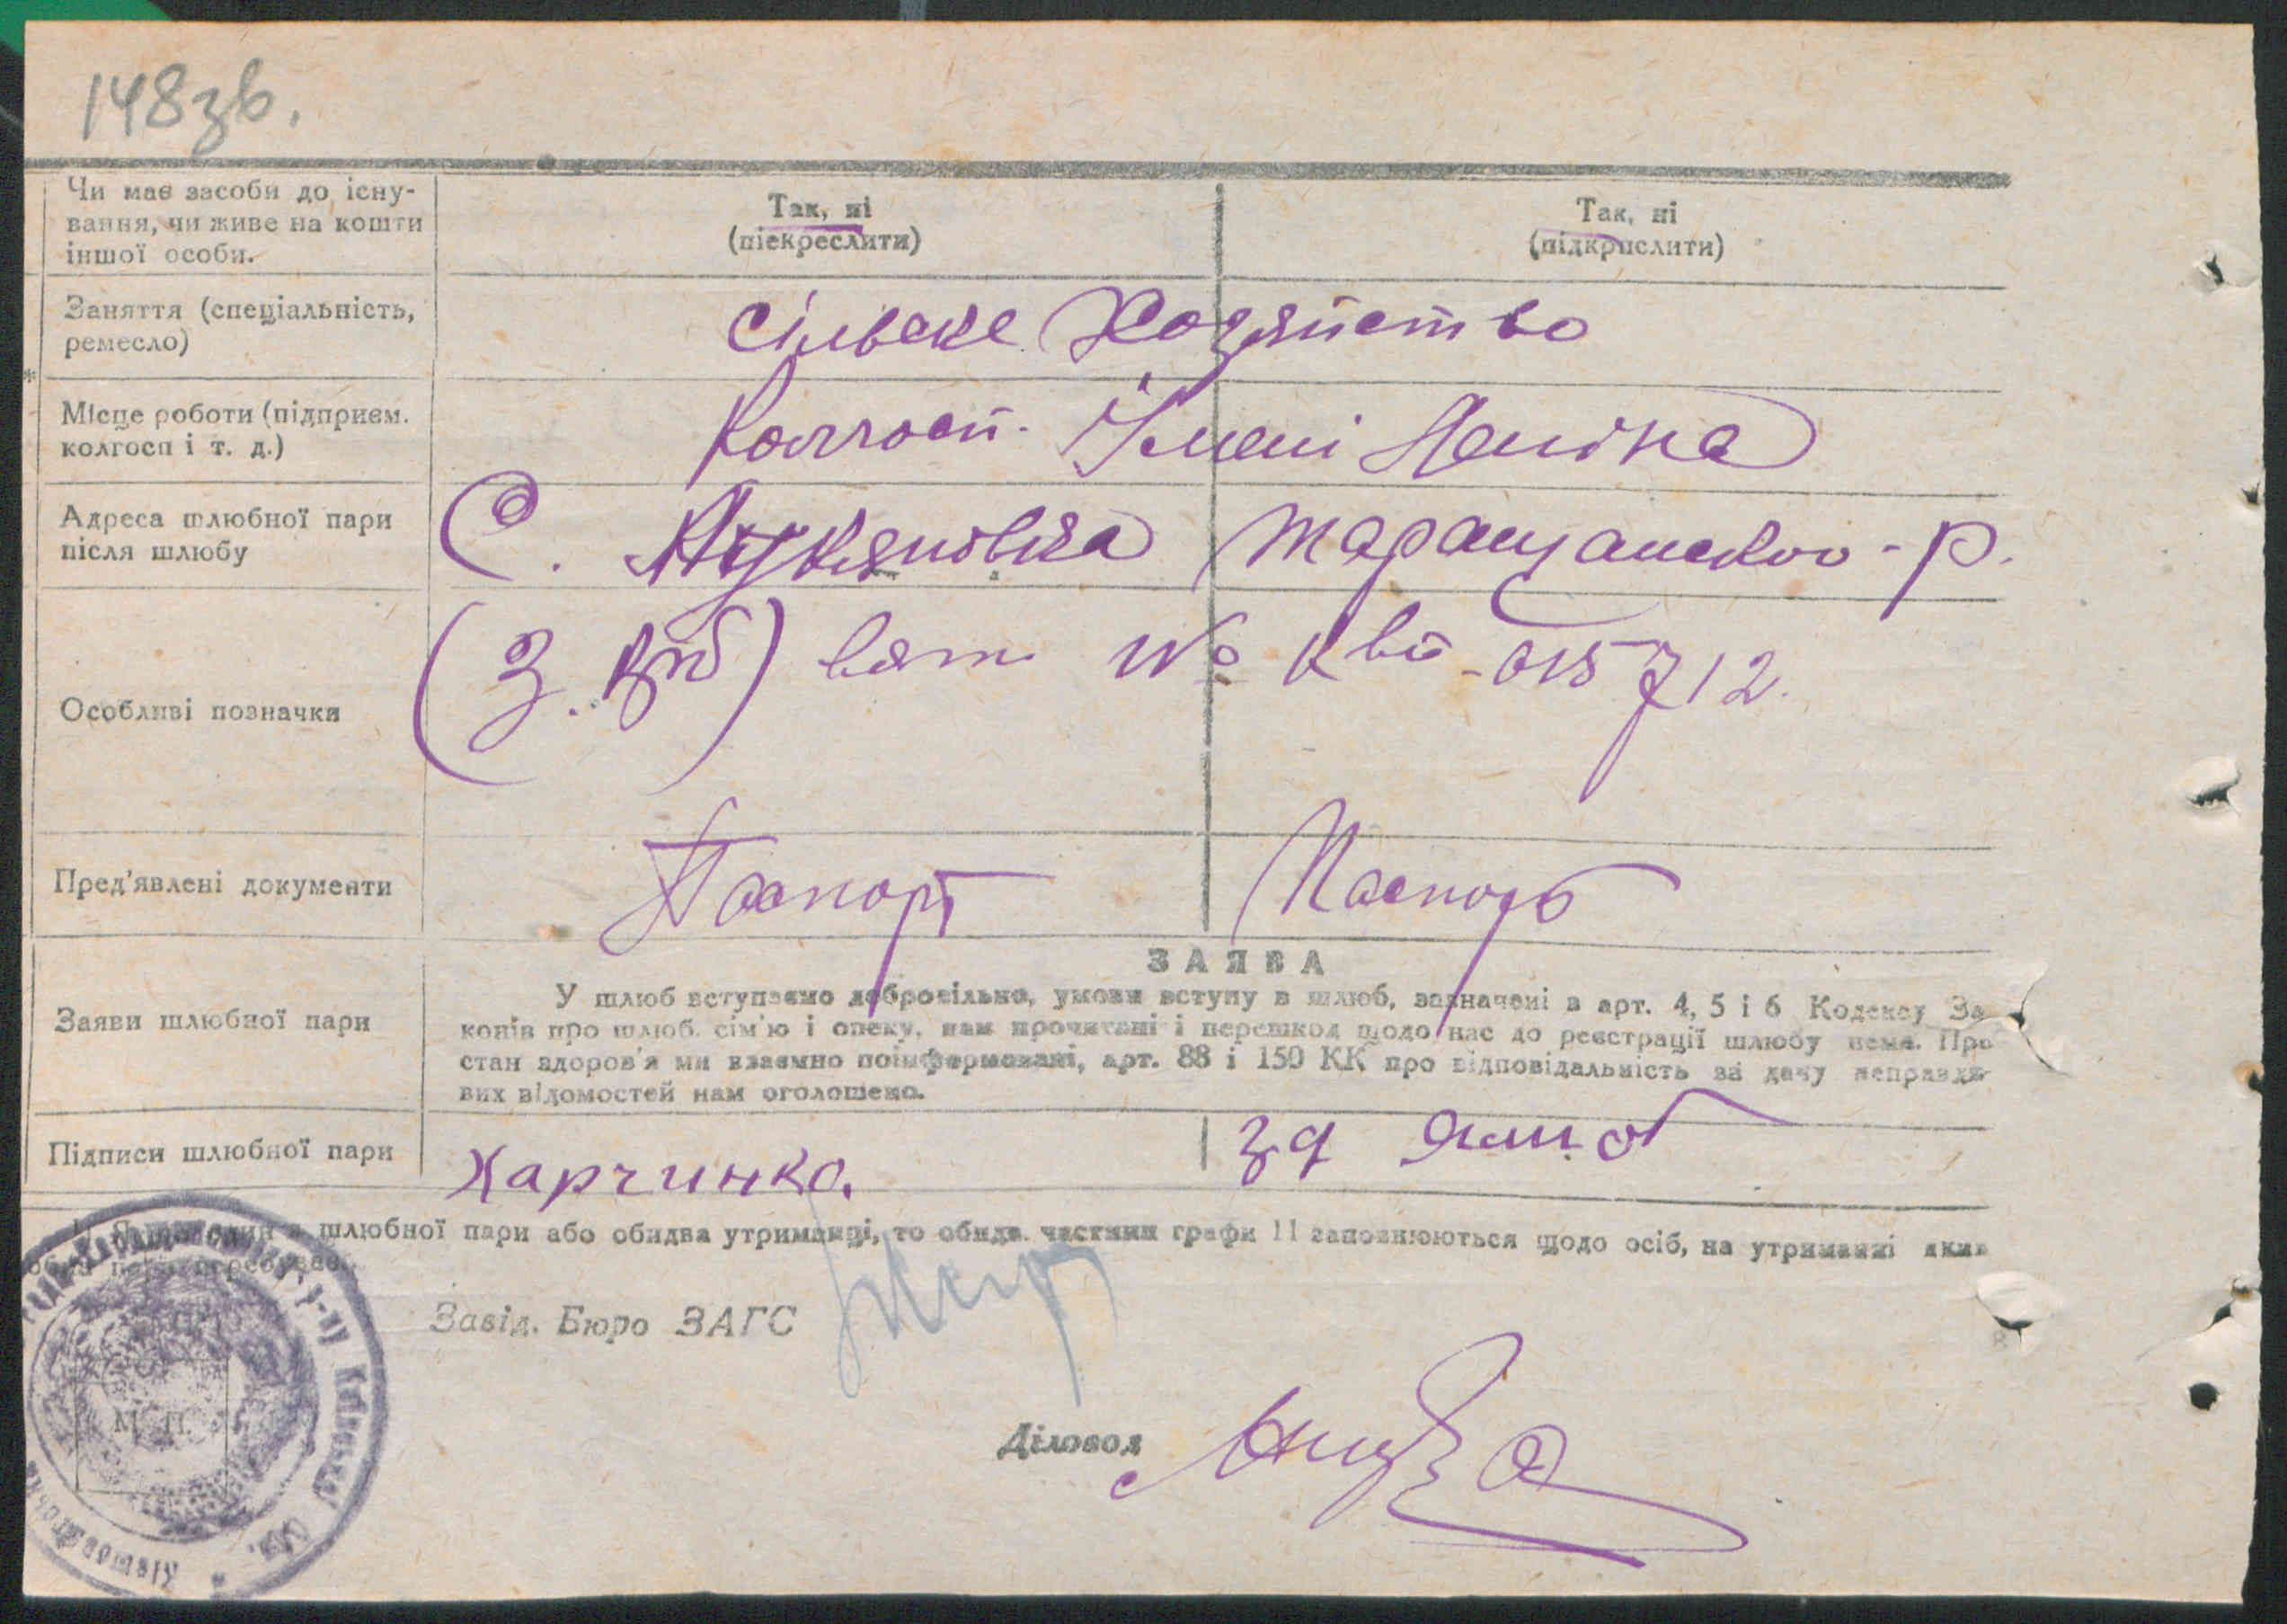 148зв.
Чи має засоби до існу-
вання, чи живе на кошти
іншої особи.
Так, ні
(піекреслити)
Так, ні
(підкрислити)
Заняття (спеціальність,
ремесло)
сільске Хозяйство
Місце роботи (підприєм.
колгосп і т. д.)
Колгосп. Імені Леніна
Адреса шлюбної пари
після шлюбу
С. Лукяновка Таращанского - р.
Особливі позначки
(3. крб) № 015712.
Пред'явлені документи
Паспорт Паспорт
Заяви шлюбної пари
ЗАЯВА
У шлюб вступаємо добровільно, умови вступу в шлюб, зазначені в арт. 4, 5 і 6 Кодексу За
конів про шлюб. сім'ю і опеку, нам прочитані і перешкод щодо нас до реєстрації шлюбу нема. Про
стан здоров'я ми взаємно поінформовані, арт. 88 і 150 КК про відповідальність за дачу неправди-
вих відомостей нам оголошено.
Підписи шлюбної пари
Харчинко.
шлюбної пари або обидва утриманці, то обидв. частини графи 11 заповнюються щодо осіб, на утриманні яких
Завід. Бюро ЗАГС
М. П.
Діловод
р-ну Київської Обл.